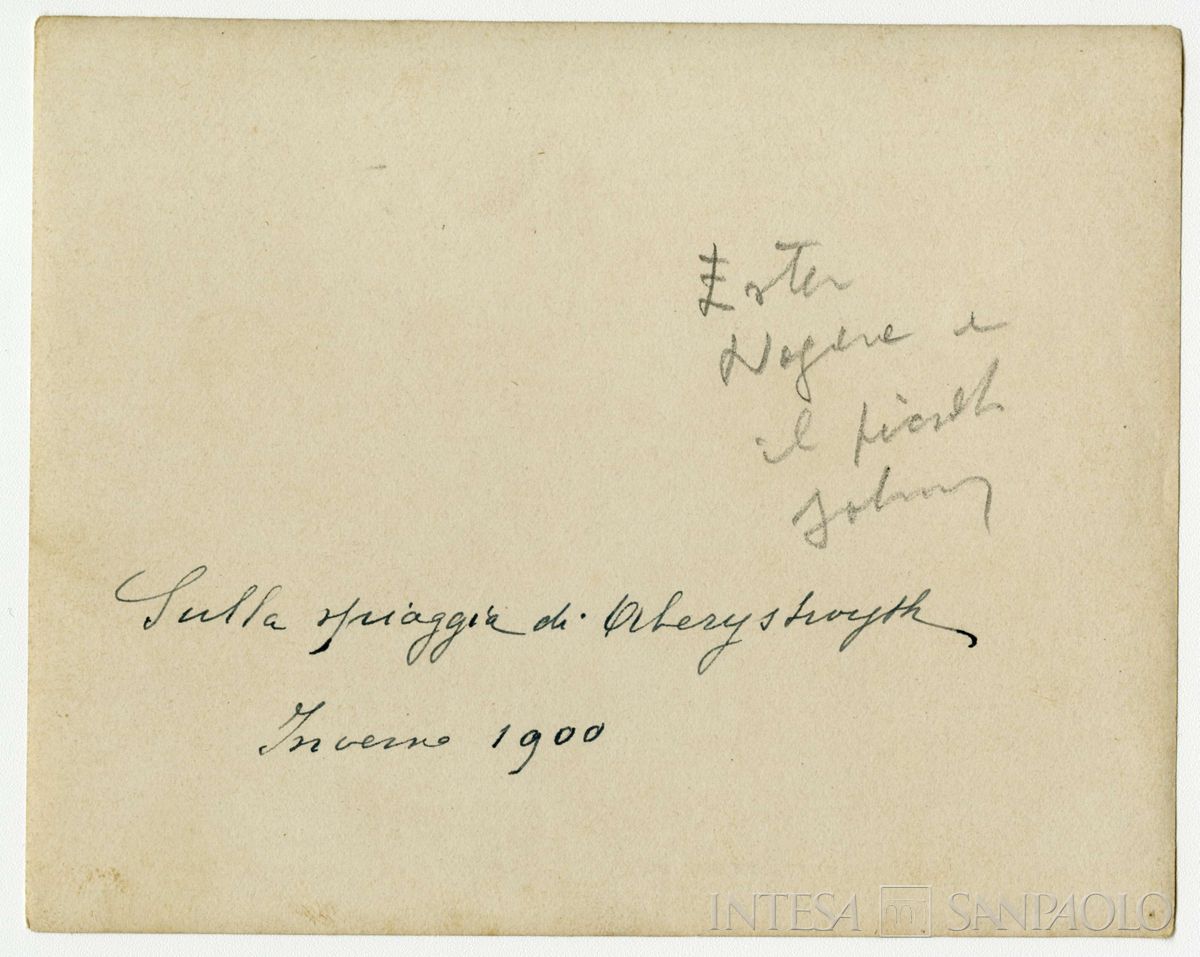 Ester
Nogere e
il piccolo
Johnny
Sulla spiaggia di Aberystwyth
Inverno 1900
INTESA SANPAOLO